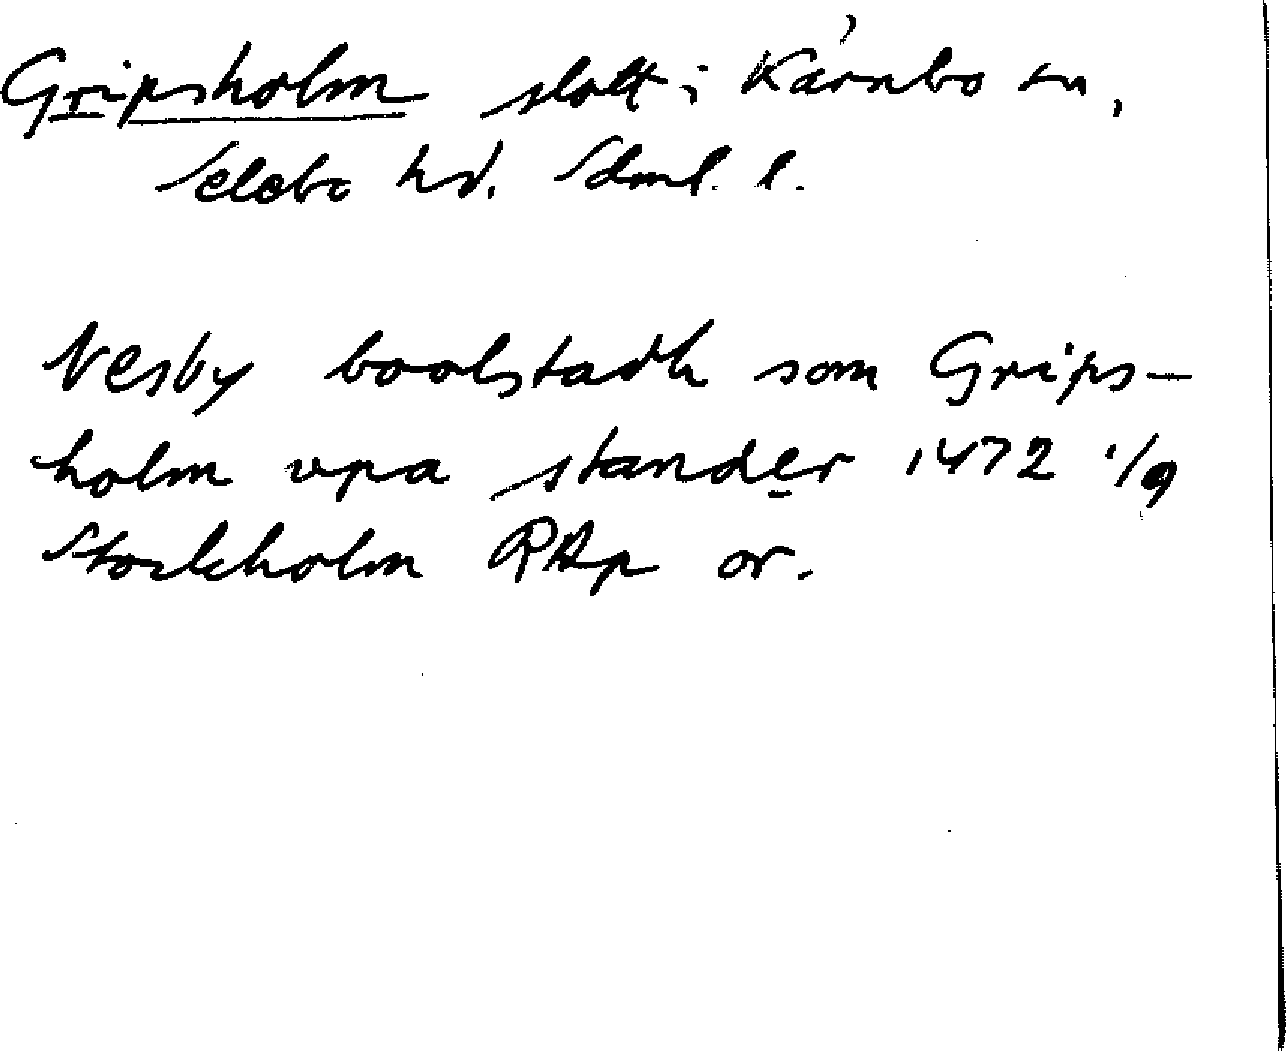 Gripsholm slott i Kärnbo sn,
Selebo hd. Sdml. l.
Nesby boolstadh som Grips-
holm vpa stander 1472 1/9
Stockholm RAp or.